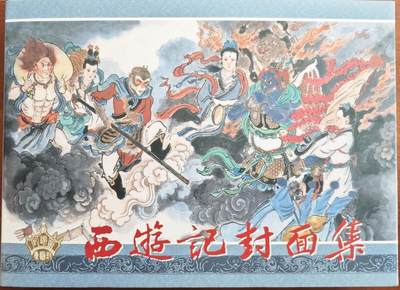 西遊記封面集